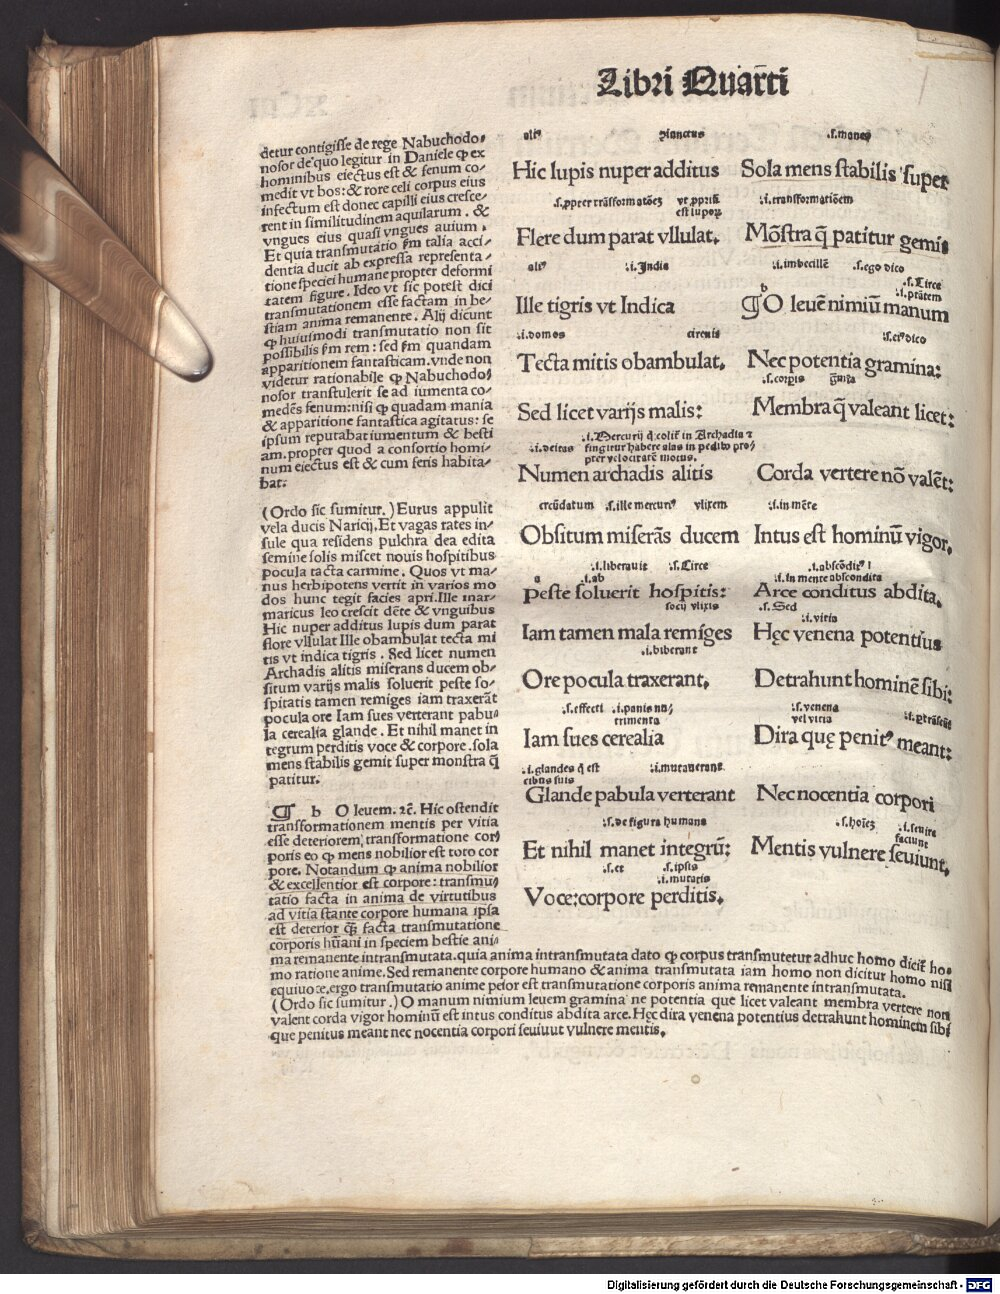 Libri Quarti
detur contigisse de rege Nabuchodo⸗
nosor de quo legitur in Daniele ꝙ ex
hominibus eiectus est & fenum co⸗
medit vt bos: & rore celi corpus eius
infectum est donec capilli eius cresce⸗
rent in similitudinem aquilarum. &
vngues eius quasi vngues auium.
Et quia transmutatio fm talia acci⸗
dentia ducit ab expressa representa⸗
tione speciei humane propter deformi
tatem figure. Ideo vt sic potest dici
transmutationem esse factam in be⸗
stiam anima remanente. Alij dicunt
ꝙ huiusmodi transmutatio non sit
possibilis fm rem: sed fm quandam
apparitionem fantasticam. vnde non
videtur rationabile ꝙ Nabuchodo⸗
nosor transtulerit se ad iumenta co⸗
medēs fenum: nisi ꝙ quadam mania
& apparitione fantastica agitatus: se
ipsum reputabat iumentum & besti
am. propter quod a consortio homi⸗
num eiectus est & cum feris habita⸗
bat:
(Ordo sic sumitur.) Eurus appulit
vela ducis Naricij. Et vagas rates in⸗
sule qua residens pulchra dea edita
semine solis miscet nouis hospitibus
pocula tacta carmine. Quos vt ma⸗
nus herbipotens vertit in varios mo
dos hunc tegit facies apri. Ille mar⸗
maricus leo crescit dēte & vnguibus
Hic nuper additus lupis dum parat
flore vllulat Ille obambulat tecta mi
tis vt indica tigris. Sed licet numen
Archadis alitis miserans ducem ob⸗
situm varijs malis soluerit peste so⸗
spitatis tamen remiges iam traxerāt
pocula ore Iam sues verterant pabu⸗
la cerealia glande. Et nihil manet in
tegrum perditis voce & corpore. sola
mens stabilis gemit super monstra q̄
patitur.
¶ b O leuem. ⁊c̄. Hic ostendit
transformationem mentis per vitia
esse deteriorem, transformatione cor⸗
poris eo ꝙ mens nobilior est toto cor
pore. Notandum ꝙ anima nobilior
& excellentior est corpore: transmu⸗
tatio facta in anima de virtutibus
ad vitia stante corpore humana ipsa
est deterior q̄ȝ facta transmutatione
corporis hūani in speciem bestie ani⸗
ma remanente intransmutata. quia anima intransmutata dato ꝙ corpus transmutetur adhuc homo dicit̄ ho⸗
mo ratione anime. Sed remanente corpore humano & anima transmutata iam homo non dicitur homo nisi
equiuoce. ergo transmutatio anime peior est transmutatione corporis anima remanente intransmutata.
(Ordo sic sumitur.) O manum nimium leuem gramina ne potentia que licet valeant membra vertere non
valent corda vigor hominū est intus conditus abdita arce. Hęc dira venena potentius detrahunt hominem sibi
que penitus meant nec nocentia corpori seuiuut vulnere mentis.
aliꝰ planctus
Hic lupis nuper additus
.s. ppter trāsformatōeȝ vt ppriū
est lupoꝝ
Flere dum parat vllulat.
aliꝰ :i. Indie
Ille tigris vt Indica
:i. domos circuis
Tecta mitis obambulat.
Sed licet varijs malis:
.i. Mercurij q̄ colit̄ in Archadia ⁊
:i. deitas fingitur habere alas in pedibꝰ pro⸗
pter velocitatē motus.
Numen archadis alitis
circūdatum .s. ille mercuriꝰ vlixem
Obsitum miserās ducem
.i. liberauit :s. Circe
a .i. ab
Peste soluerit hospitis:
socij vlixis
Iam tamen mala remiges
.i. biberant
Ore pocula traxerant.
.s. effecti .i. panis nu⸗
trimenta
Iam sues cerealia
:i. glandes q̄ est :i. mutauerant
cibus suis
Glande pabula verterant
:s. de figura humana
Et nihil manet integrū:
:s. et .s. ipsis
.i. mutatis
Voce: corpore perditis.
.s. manes
Sola mens stabilis super
:i. transformationem
Mōstra q̄ patitur gemis
:i. imbecillē .s. ego dico
.s. Circe
b :i. ptātem
¶O leuē nimiū manum
:s. eiꝰ dico
Nec potentia gramina:
.s. corpis
Membra q̄ valeant licet:
Corda vertere nō valēt:
:i. in mēte
Intus est hominū vigor.
.i. abscōditꝰ
:i. in mente abscondita
Arce conditus abdita.
.s. Sed
:i. vitia
Hęc venena potentius
Detrahunt hominē sibi:
:s. venena
vel vitia
Dira quę penitꝰ meant:
Nec nocentia corpori
.s. hoīeȝ :i. seuire
faciunt
Mentis vulnere seuiunt.
Digitalisierung gefördert durch die Deutsche Forschungsgemeinschaft - DFG